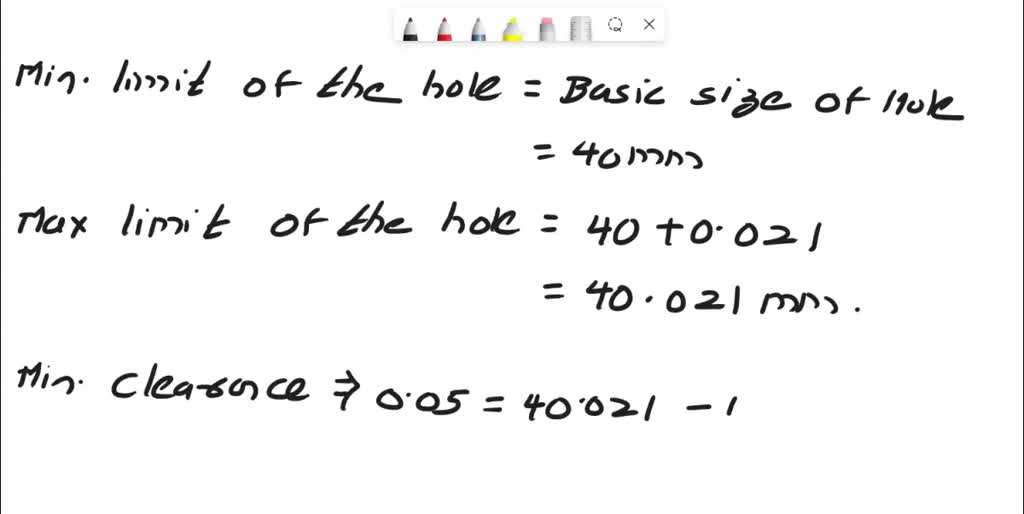 Min. limit of the hole = Basic size of Hole
= 40mm
Max limit of the hole = 40 + 0.021
= 40.021 mm.
Min. Clearance ⇒ 0.05 = 40.021 -